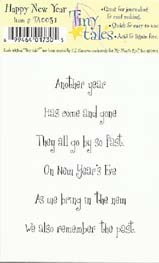 Happy New Year
Item # TA0051
Tiny
tales
• Great for journaling
& card making.
• Quick & easy to use
• Acid & lignin free.
Another year
Has come and gone
They all go by so fast.
On New Year's Eve
As we bring in the new
We also remember the past.